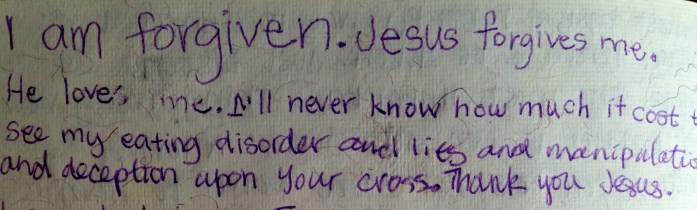 I am forgiven. Jesus forgives me.
He loves me. I'll never know how much it cost t
see my eating disorder and lies and manipulatio
and deception upon your cross. Thank you Jesus.